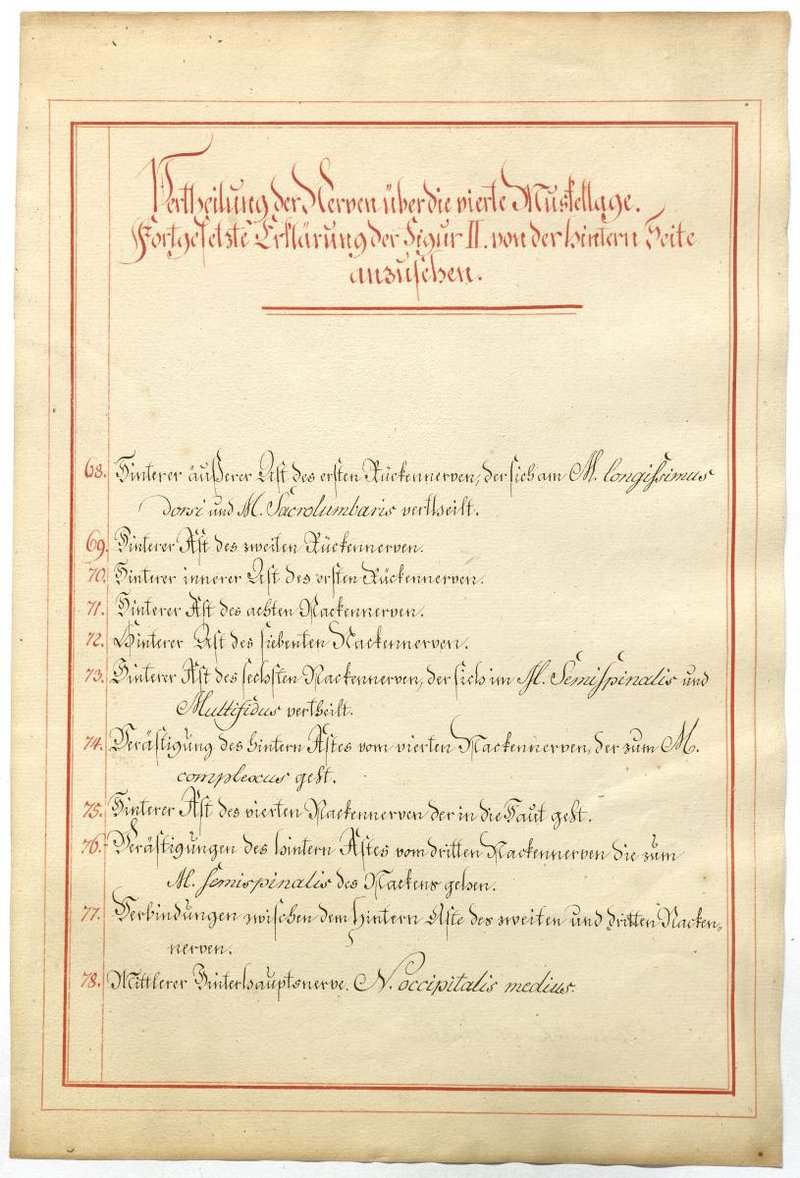 Vertheilung der Nerven über die vierte Muskellage.
Fortgesetzte Erklärung der Figur II. von der hintern Seite
anzusehen.
68. Hinterer äußerer Ast des ersten Rückennerven, der sich am M. longissimus
dorsi und M. Sacrolumbaris vertheilt.
69. Hinterer Ast des zweiten Rückennerven.
70. Hinterer innerer Ast des ersten Rückennerven.
71. Hinterer Ast des achten Nackennerven.
72. Hinterer Ast des siebenten Nackennerven.
73. Hinterer Ast des sechsten Nackennerven, der sich im M. Semispinalis und
Multifidus vertheilt.
74. Verästigung des hintern Astes vom vierten Nackennerven, der zum M.
complexus geht.
75. Hinterer Ast des vierten Nackennerven der in die Haut geht.
76. Verästigungen des hintern Astes vom dritten Nackennerven die zum
M. semispinalis des Nackens gehen.
77. Verbindungen zwischen dem hintern Aste des zweiten und dritten Nacken-
nerven.
78. Mittlerer Hinterhauptsnerve. N. occipitalis medius.